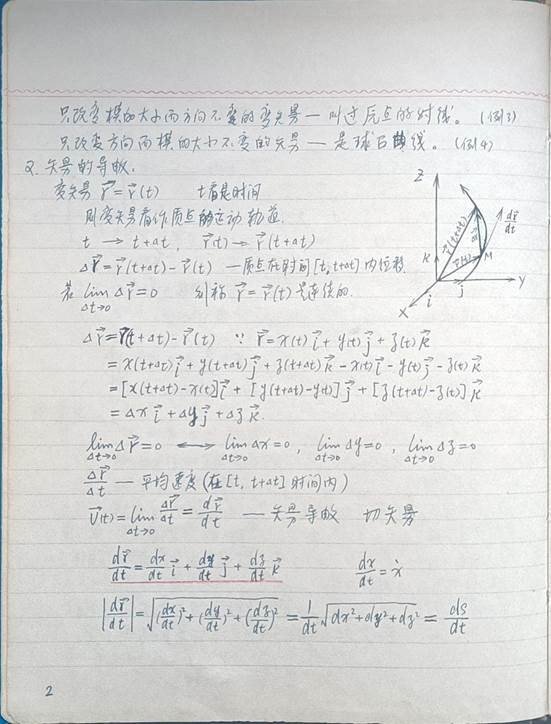 只改变模的大小而方向不变的变矢量—叫过原点的射线。(例3)
只改变方向而模的大小不变的矢量—是球面曲线。(例4)
2. 矢量的导数.
变矢量 r⃗ = r⃗(t) t看是时间
则变矢量看作质点的运动轨迹.
t → t+Δt, r⃗(t) → r⃗(t+Δt)
Δr⃗ = r⃗(t+Δt) - r⃗(t) —质点在时间[t, t+Δt]内位移
若 lim_{Δt→0} Δr⃗ = 0 则称 r⃗ = r⃗(t) 是连续的.
Z
r⃗(t+Δt)
Δr⃗
dr⃗/dt
r⃗(t)
M
k
i
j
Y
X
Δr⃗ = r⃗(t+Δt) - r⃗(t) ∵ r⃗ = x(t)i⃗ + y(t)j⃗ + z(t)k⃗
= x(t+Δt)i⃗ + y(t+Δt)j⃗ + z(t+Δt)k⃗ - x(t)i⃗ - y(t)j⃗ - z(t)k⃗
= [x(t+Δt) - x(t)]i⃗ + [y(t+Δt) - y(t)]j⃗ + [z(t+Δt) - z(t)]k⃗
= Δx i⃗ + Δy j⃗ + Δz k⃗.
lim_{Δt→0} Δr⃗ = 0 ⟷ lim_{Δt→0} Δx = 0, lim_{Δt→0} Δy = 0, lim_{Δt→0} Δz = 0
Δr⃗/Δt — 平均速度(在[t, t+Δt]时间内)
v⃗(t) = lim_{Δt→0} Δr⃗/Δt = dr⃗/dt — 矢量导数 切矢量
dr⃗/dt = dx/dt i⃗ + dy/dt j⃗ + dz/dt k⃗ dx/dt = ẋ
|dr⃗/dt| = √((dx/dt)² + (dy/dt)² + (dz/dt)²) = 1/dt √(dx² + dy² + dz²) = ds/dt
2